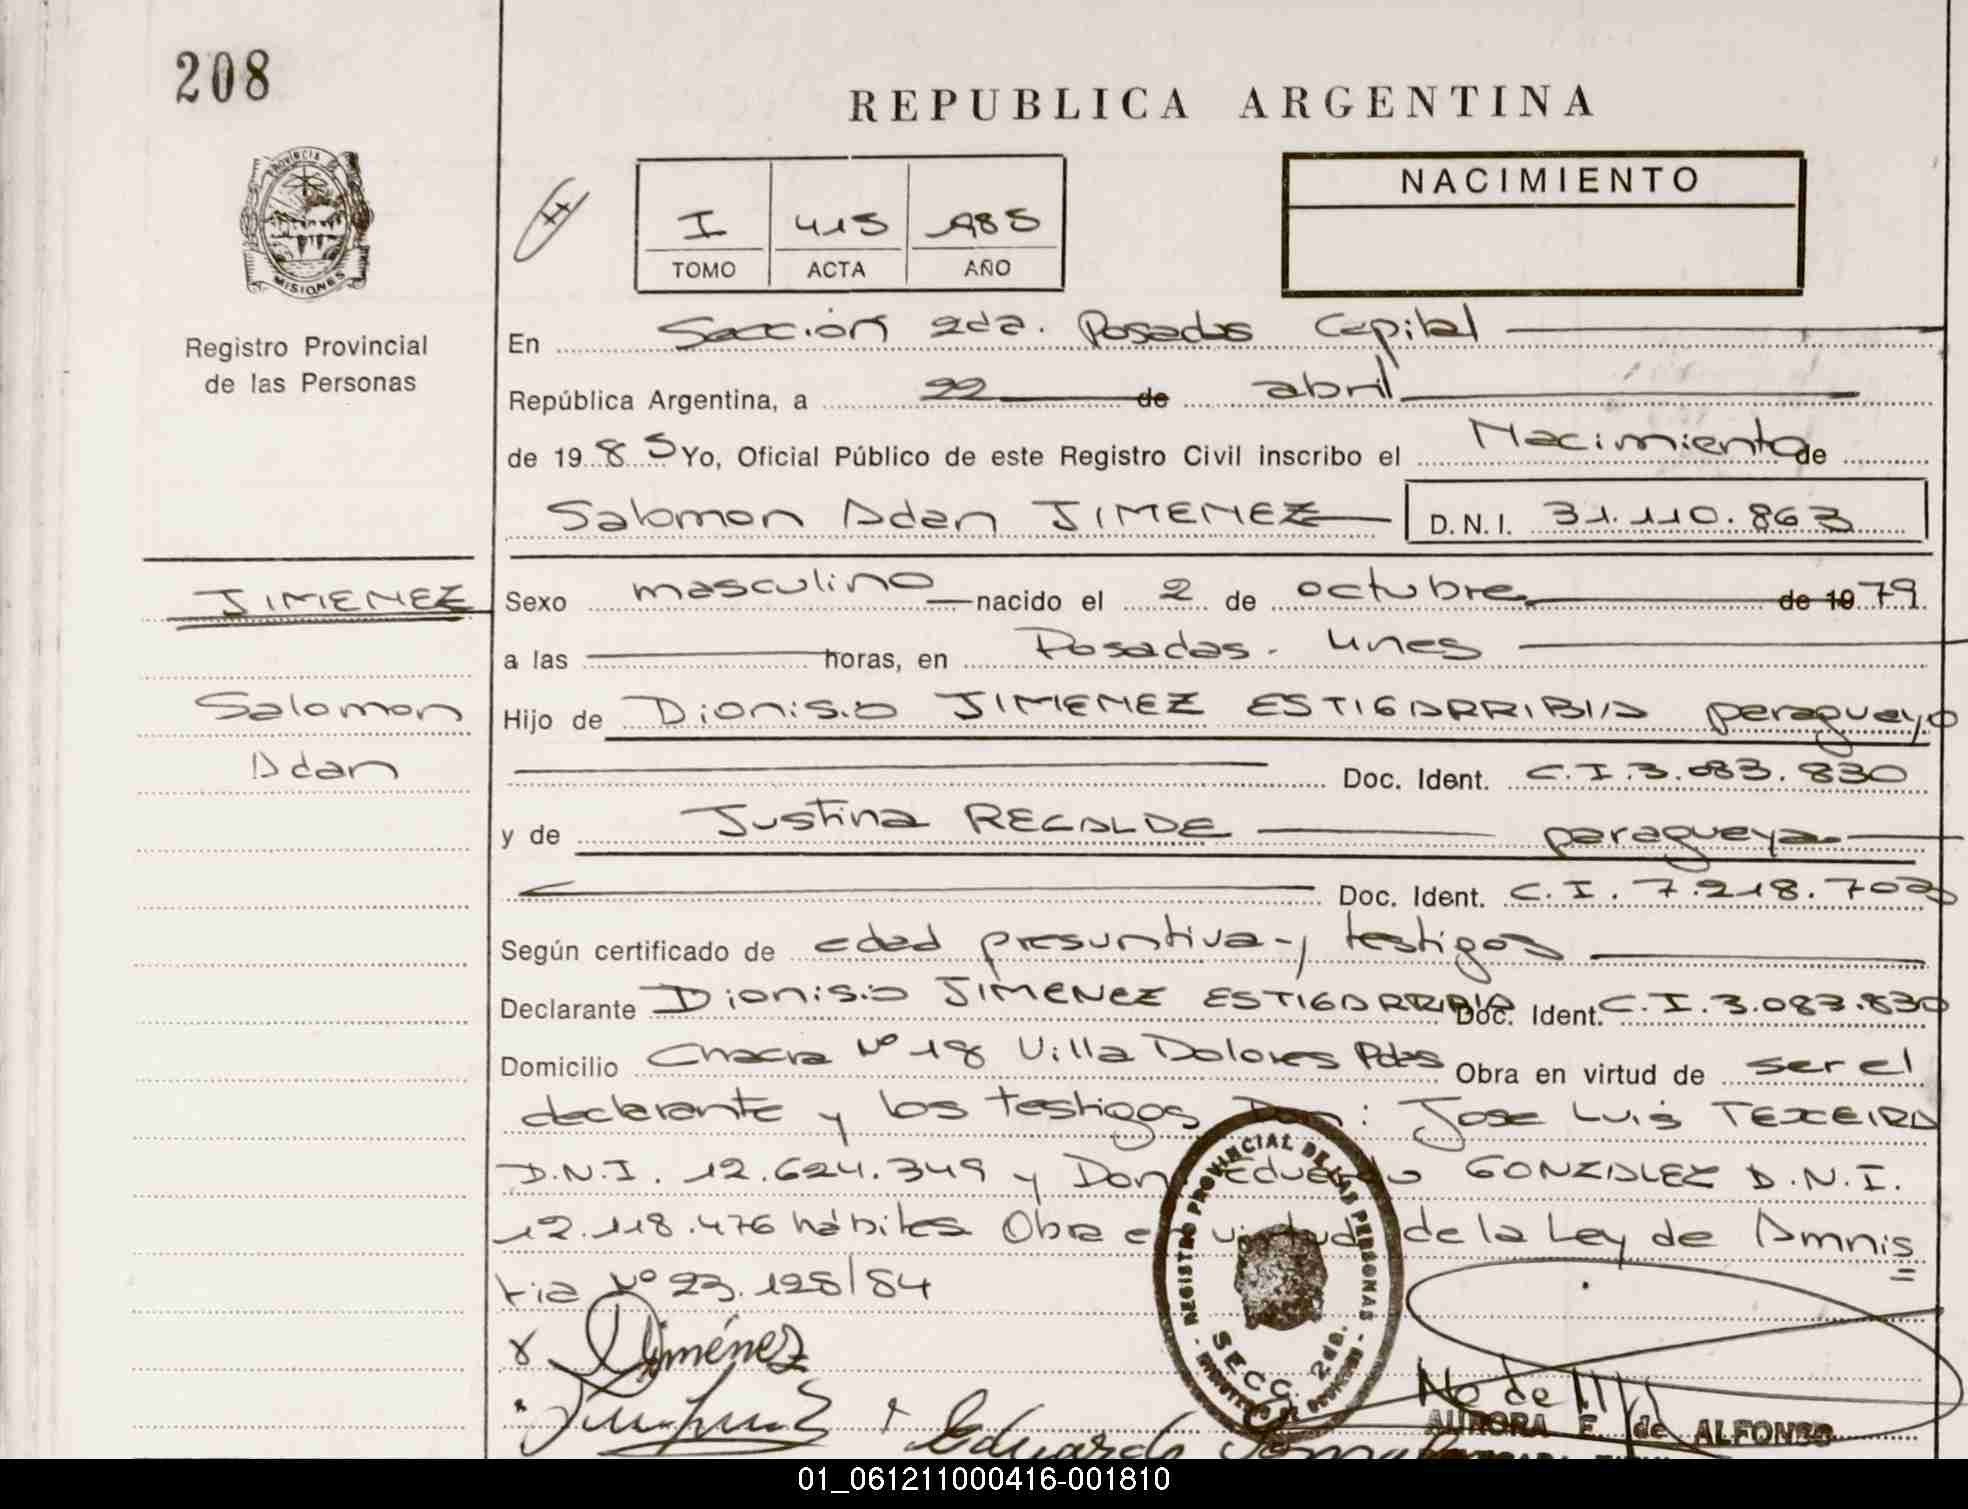 208
REPUBLICA ARGENTINA
PROVINCIA DE
MISIONES
H
I 415 1985
TOMO ACTA AÑO
NACIMIENTO
Registro Provincial
de las Personas
En Sección 2da. Posadas Capital
República Argentina, a 22 de abril
de 1985 Yo, Oficial Público de este Registro Civil inscribo el Nacimiento de
Salomon Adan JIMENEZ D.N.I. 31.110.863
JIMENEZ
Salomon
Adan
Sexo masculino nacido el 2 de octubre de 1979
a las horas, en Posadas. Mnes
Hijo de Dionisio JIMENEZ ESTIGARRIBIA paraguayo
Doc. Ident. C.I.3.083.830
y de Justina RECALDE paraguaya
Doc. Ident. C.I. 7.218.703
Según certificado de edad presuntiva y testigos
Declarante Dionisio JIMENEZ ESTIGARRIBIA Doc. Ident. C.I.3.083.830
Domicilio Chacra Nº 18 Villa Dolores Pdas Obra en virtud de ser el
declarante y los testigos Don: Jose Luis TEXEIRA
D.N.I. 12.624.349 y Don Eduardo GONZALEZ D.N.I.
12.118.476 hábiles Obra en virtud de la Ley de Amnis=
tia Nº 23.128/84
REGISTRO PROVINCIAL DE LAS PERSONAS
SECC. 2da.
x Jiménez
Eduardo
AURORA E. de ALFONSO
01_061211000416-001810